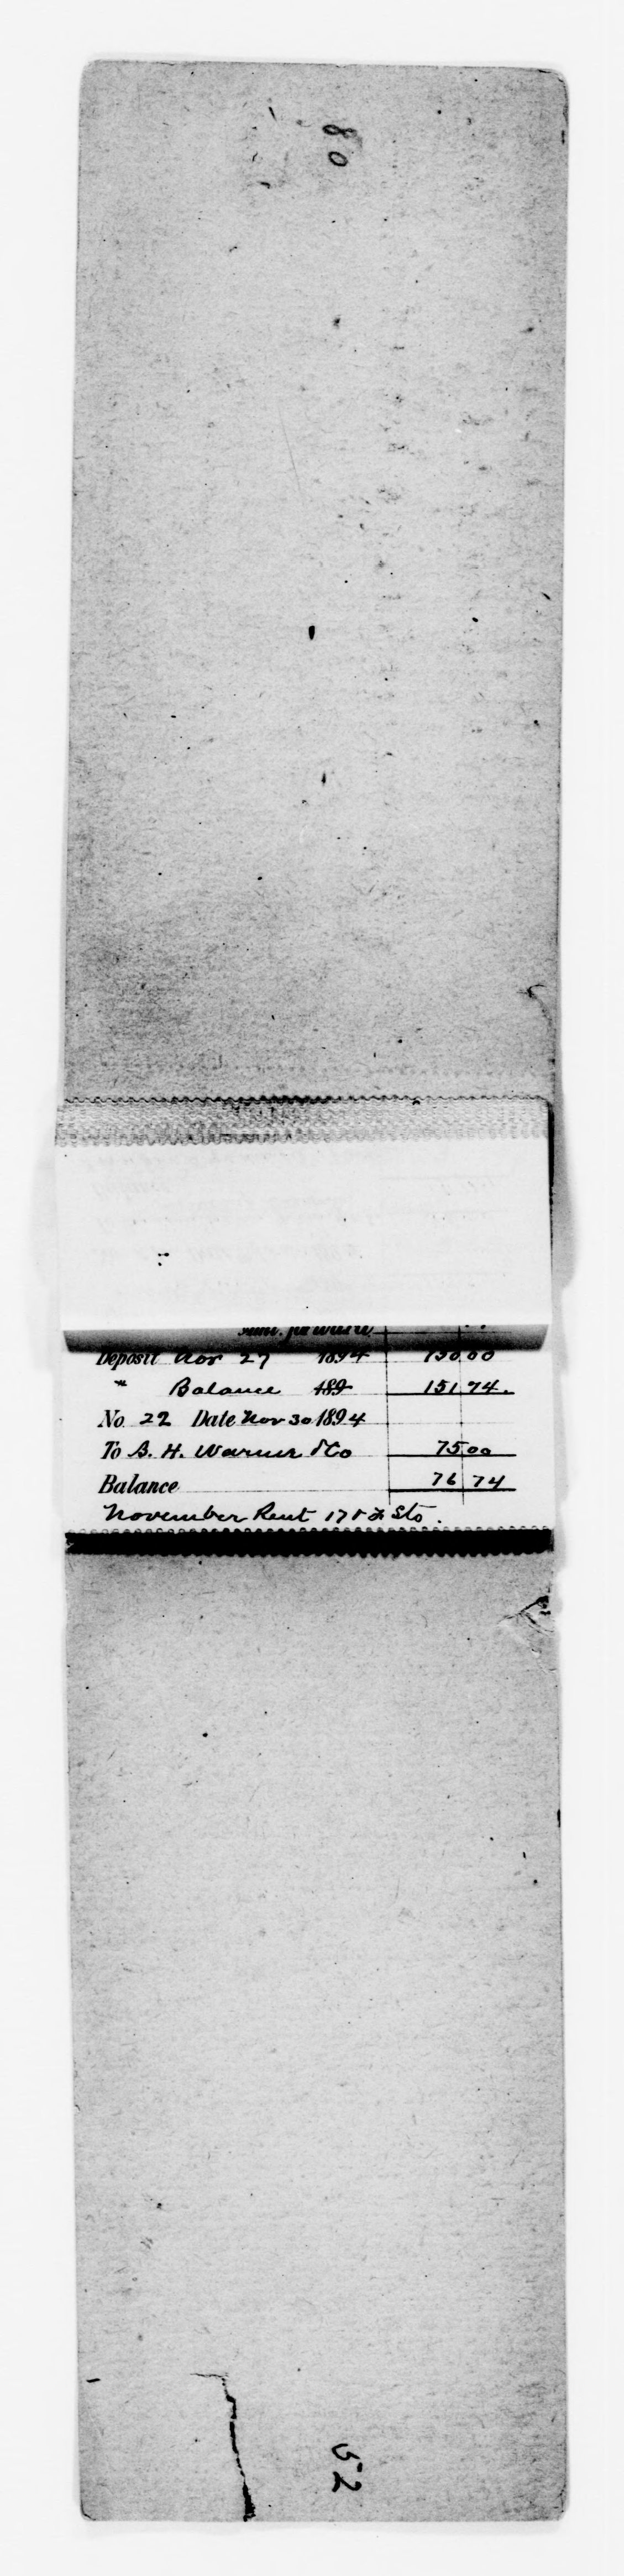 80
Amt. forward
Deposit Nov 27 1894 150 00
" Balance 189 151 74.
No. 22 Date Nov 30 1894
To B. H. Warner & Co 75 00
Balance 76 74
November Rent 17 & Sts.
52